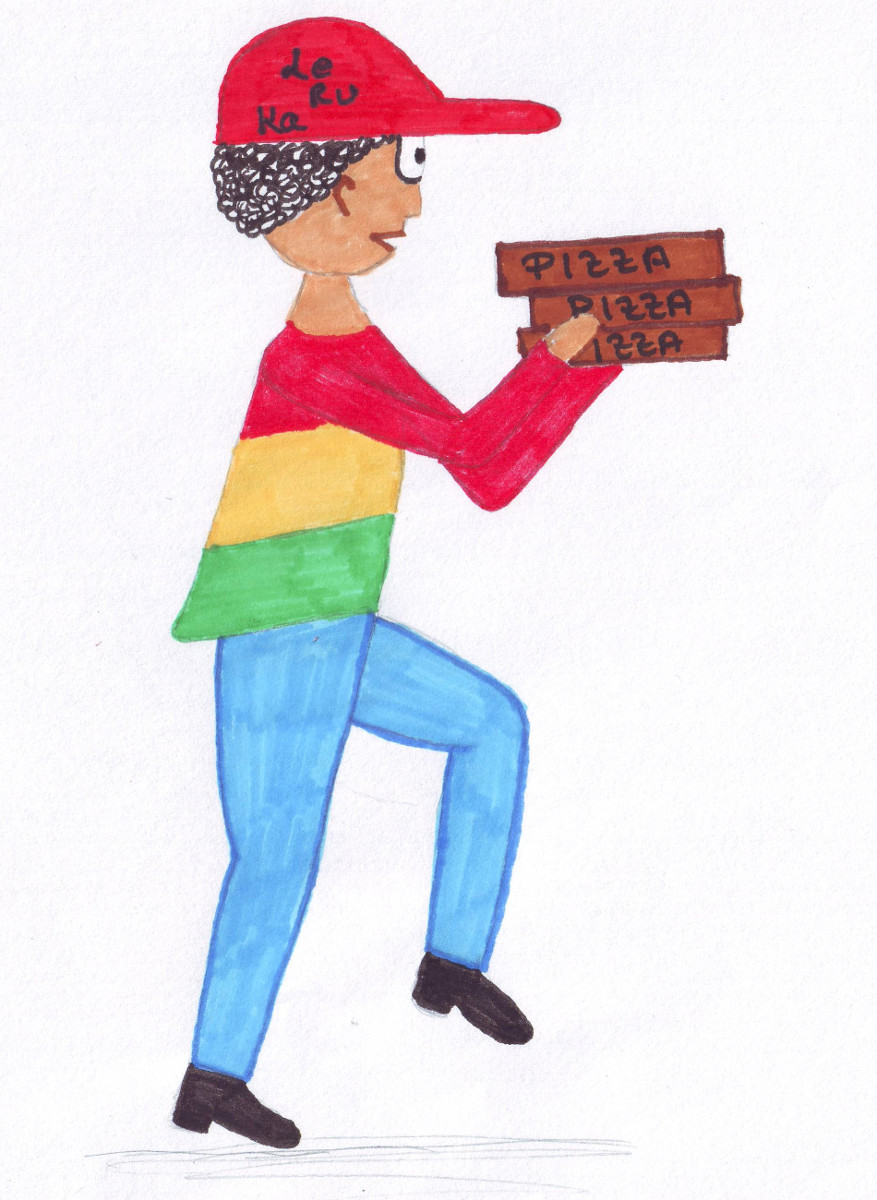 Le
RU
Ka
PIZZA
PIZZA
IZZA